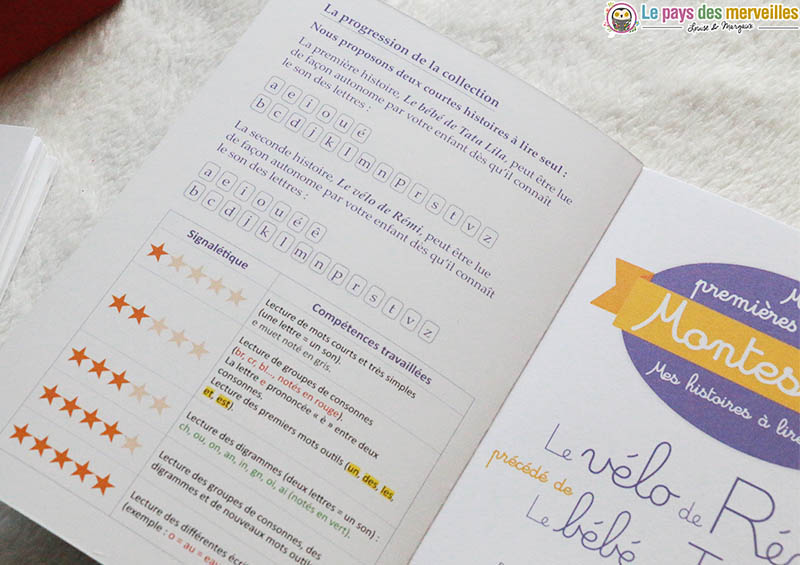 Le pays des merveilles
Louise & Margaux
La progression de la collection
Nous proposons deux courtes histoires à lire seul :
La première histoire, Le bébé de Tatu Lila, peut être lue
de façon autonome par votre enfant dès qu'il connaît
le son des lettres :
a e i o u é
b c d j k l m n p r s t v z
La seconde histoire, Le vélo de Rémi, peut être lue
de façon autonome par votre enfant dès qu'il connaît
le son des lettres :
a e i o u é ê
b c d j k l m n p r s t v z
Signalétique
Compétences travaillées
Lecture de mots courts et très simples
(une lettre = un son).
e muet noté en gris.
Lecture de groupes de consonnes
(br, cr, bl..., notés en rouge).
La lettre e prononcée « è » entre deux
consonnes.
Lecture des premiers mots outils (un, des, les,
et, est).
Lecture des digrammes (deux lettres = un son) :
ch, ou, on, an, in, gn, oi, ai (notés en vert).
Lecture des groupes de consonnes, des
digrammes et de nouveaux mots
Lecture des différentes
(exemple : o = au =
premières
Montes
Mes histoires à lire
Le vélo de Ré
précédé de
Le bébé